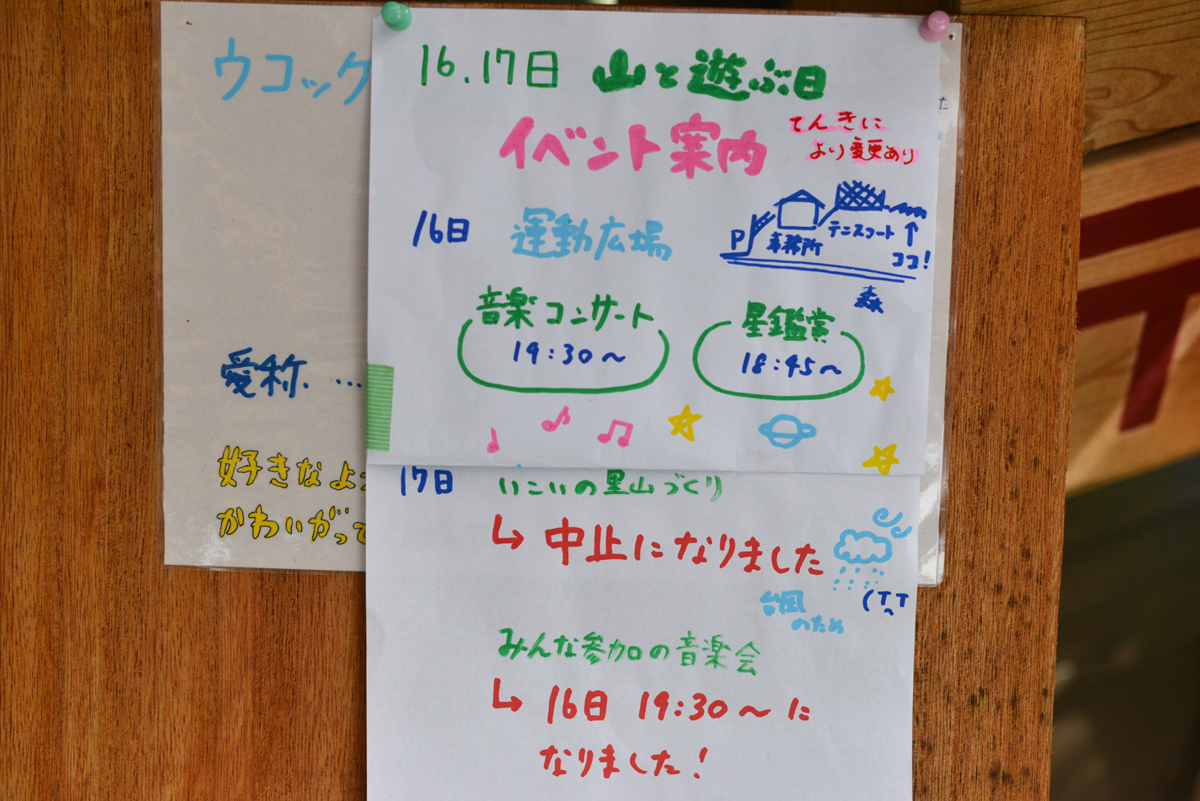 ウコック
愛称 …
好きなよ
かわいがって
16.17日 山と遊ぶ日
イベント案内
てんきに
より変更あり
16日 運動広場
P 事務所 テニスコート ↑
ココ!
森
音楽コンサート
19:30〜
星鑑賞
18:45〜
17日 いこいの里山づくり
↳ 中止になりました
台風
のため
(T_T
みんな参加の音楽会
↳ 16日 19:30〜に
なりました!